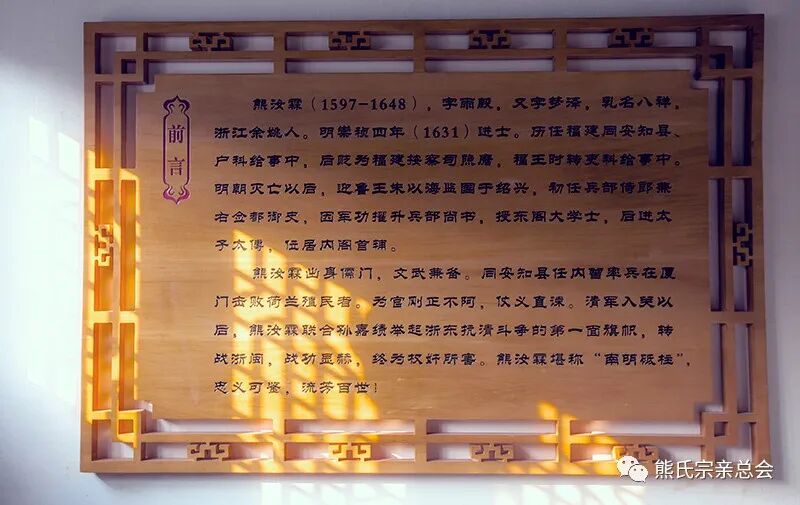 前言
熊汝霖（1597-1648），字雨殷，又字梦泽，乳名八祥，
浙江余姚人。明崇祯四年（1631）进士。历任福建同安知县、
户科给事中，后贬为福建按察司照磨，福王时转吏科给事中。
明朝灭亡以后，迎鲁王朱以海监国于绍兴，初任兵部侍郎兼
右佥都御史，因军功擢升兵部尚书，授东阁大学士，后进太
子太傅，位居内阁首辅。
熊汝霖出身儒门，文武兼备。同安知县任内曾率兵在厦
门击败荷兰殖民者。为官刚正不阿，仗义直谏。清军入关以
后，熊汝霖联合孙嘉绩举起浙东抗清斗争的第一面旗帜，转
战浙闽，战功显赫，终为权奸所害。熊汝霖堪称“南明砥柱”，
忠义可鉴，流芳百世！
熊氏宗亲总会